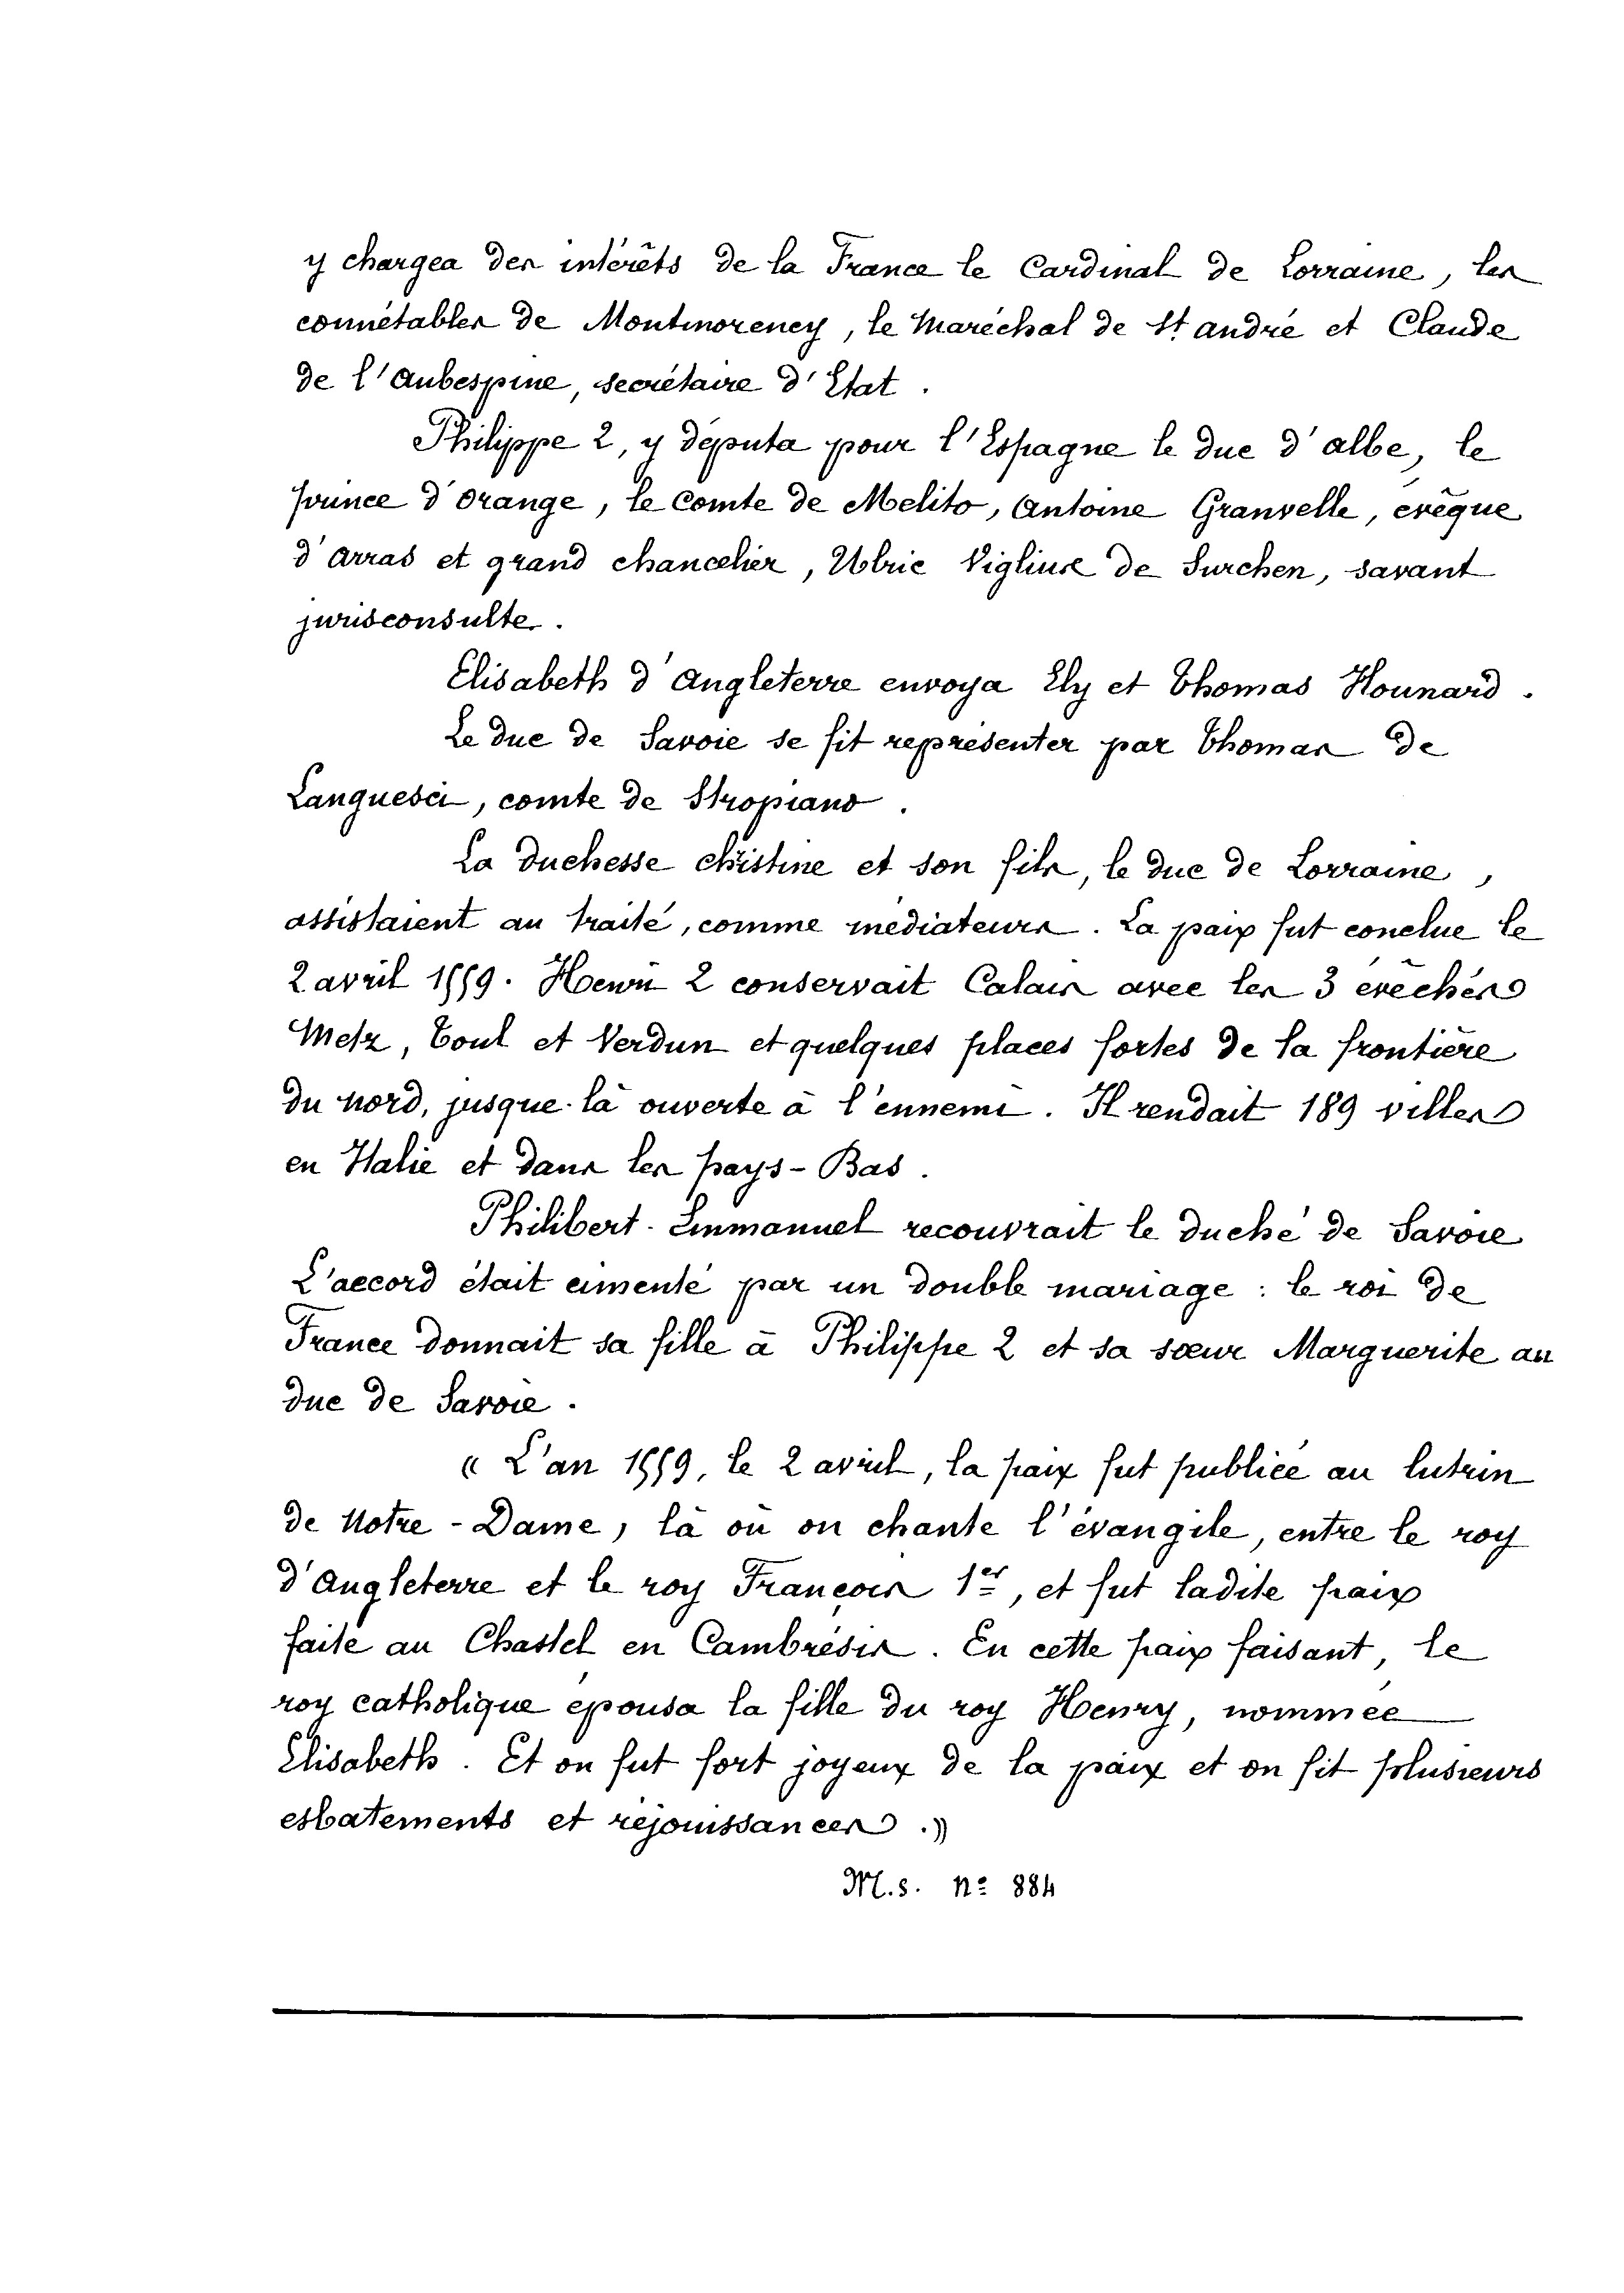 y chargea des intérêts de la France le Cardinal de Lorraine, les
connétables de Montmorency, le Maréchal de St. André et Claude
de l'Aubespine, secrétaire d'Etat.
Philippe 2, y députa pour l'Espagne le duc d'Albe, le
prince d'Orange, le Comte de Melito, Antoine Granvelle, évêque
d'Arras et grand chancelier, Ulric Vigliuse de Surchen, savant
jurisconsulte.
Elisabeth d'Angleterre envoya Ely et Thomas Hounard.
Le duc de Savoie se fit représenter par Thomas de
Languesci, comte de Stropiano.
La duchesse Christine et son fils, le duc de Lorraine,
assistaient au traité, comme médiateurs. La paix fut conclue le
2 avril 1559. Henri 2 conservait Calais avec les 3 évêchés
Metz, Toul et Verdun et quelques places fortes de la frontière
du nord, jusque-là ouverte à l'ennemi. Il rendait 189 villes
en Italie et dans les pays-Bas.
Philibert-Emmanuel recouvrait le duché de Savoie
L'accord était cimenté par un double mariage : le roi de
France donnait sa fille à Philippe 2 et sa sœur Marguerite au
duc de Savoie.
« L'an 1559, le 2 avril, la paix fut publiée au lutrin
de Notre-Dame, là où on chante l'évangile, entre le roy
d'Angleterre et le roy François 1er, et fut ladite paix
faite au Chastel en Cambrésis. En cette paix faisant, le
roy catholique épousa la fille du roy Henry, nommée
Elisabeth. Et on fut fort joyeux de la paix et on fit plusieurs
esbatements et réjouissances. »
M.s. n° 884